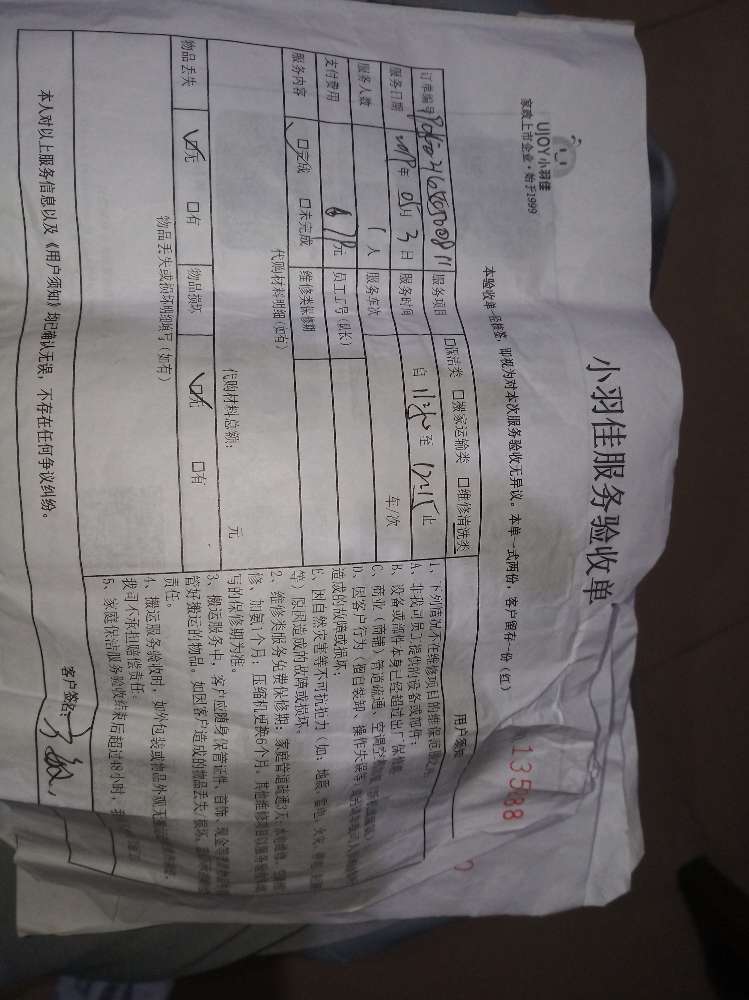 UJOY小羽佳
家政上市企业·始于1999
小羽佳服务验收单
13588
本验收单一经签签，即视为对本次服务验收无异议。本单一式两份，客户留存一份（红）
订单编号
服务项目 □保洁类 □搬家运输类 □维修清洗类
服务日期 年 05月 3日 服务时间 自 11:20 至 12:15 止
服务人数 1人 服务车次 车/次
支付费用 元 员工工号（队长）
服务内容 ☑完成 □未完成 维修类保修期
代购材料明细（如有）
代购材料总额： 元
物品丢失 ☑无 □有 物品损坏 ☑无 □有
物品丢失或损坏明细填写（如有）
用户须知
1、下列情况不在维修项目的维保范围之内
A、非我司员工提供的设备或部件；
B、设备或部件本身已经超过出厂保修期
C、商业（商铺）管道疏通、空调空
D、因客户行为（擅自装卸、操作失误等
造成的故障或损坏；
E、因自然灾害等不可抗拒力（如：地震、雷电、火灾、
等）原因造成的故障或损坏。
2、维修类服务免费保修期：家庭管道疏通3天，水电维修、
修、加氨1个月；压缩机更换6个月，其他维修类目以服务
写的保修期为准。
3、搬运服务中，客户应随身保管证件、首饰、现金等
管好搬运的物品。如因客户造成的物品丢失/损坏，
责任。
4、搬运服务验收时，如外包装或物品外观无
我司不承担赔偿责任。
5、家庭保洁服务验收结束后超过48小时，我
本人对以上服务信息以及《用户须知》均已确认无误，不存在任何争议纠纷。
客户签名：